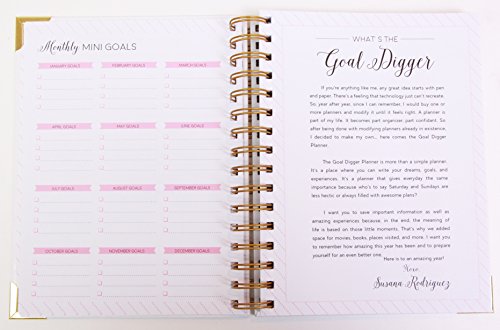 Monthly MINI GOALS
JANUARY GOALS
FEBRUARY GOALS
MARCH GOALS
APRIL GOALS
MAY GOALS
JUNE GOALS
JULY GOALS
AUGUST GOALS
SEPTEMBER GOALS
OCTOBER GOALS
NOVEMBER GOALS
DECEMBER GOALS
WHAT'S THE
Goal Digger
If you're anything like me, any great idea starts with pen
and paper. There's a feeling that technology just can't recreate.
So, year after year, since I can remember, I would buy one or
more planners and modify it until it feels right. A planner is
part of my life. It becomes part organizer, part confident. So
after being done with modifying planners already in existence,
I decided to make my own... here comes the Goal Digger
Planner.
The Goal Digger Planner is more than a simple planner.
It's a place where you can write your dreams, goals, and
experiences. It's a planner that gives everyday the same
importance because who's to say Saturday and Sundays are
less hectic or always filled with awesome plans?
I want you to save important information as well as
amazing experiences because, in the end, the meaning of
life is based on those little moments. That's why we added
space for movies, books, places visited, and more. I want you
to remember how amazing this year has been and to prepare
yourself for an even better one.
Here is to an amazing year!
Xoxo,
Susana Rodriguez